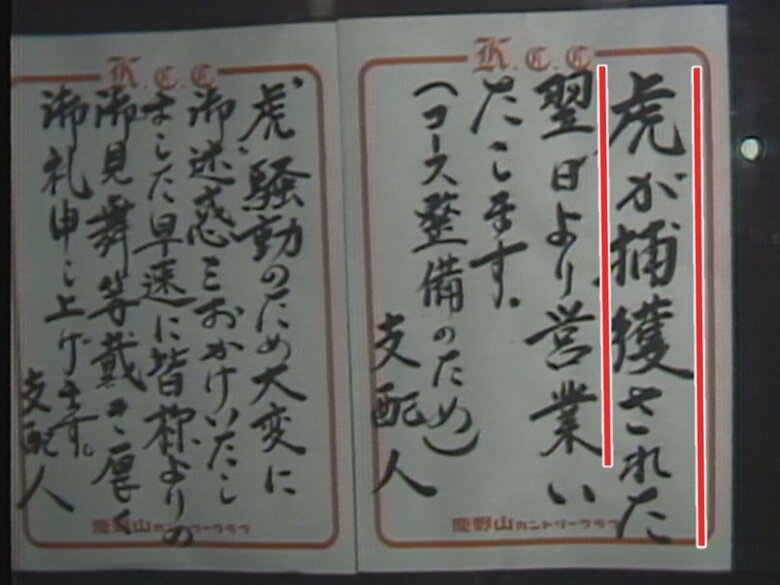 K.C.C
虎が捕獲された
翌日より営業い
たします。
(コース整備のため)
支配人
鹿野山カントリークラブ
K.C.C
虎騒動のため大変に
御迷惑をおかけいたし
ました早速に皆様よりの
御見舞等戴き厚く
御礼申し上げます。
支配人
鹿野山カントリークラブ